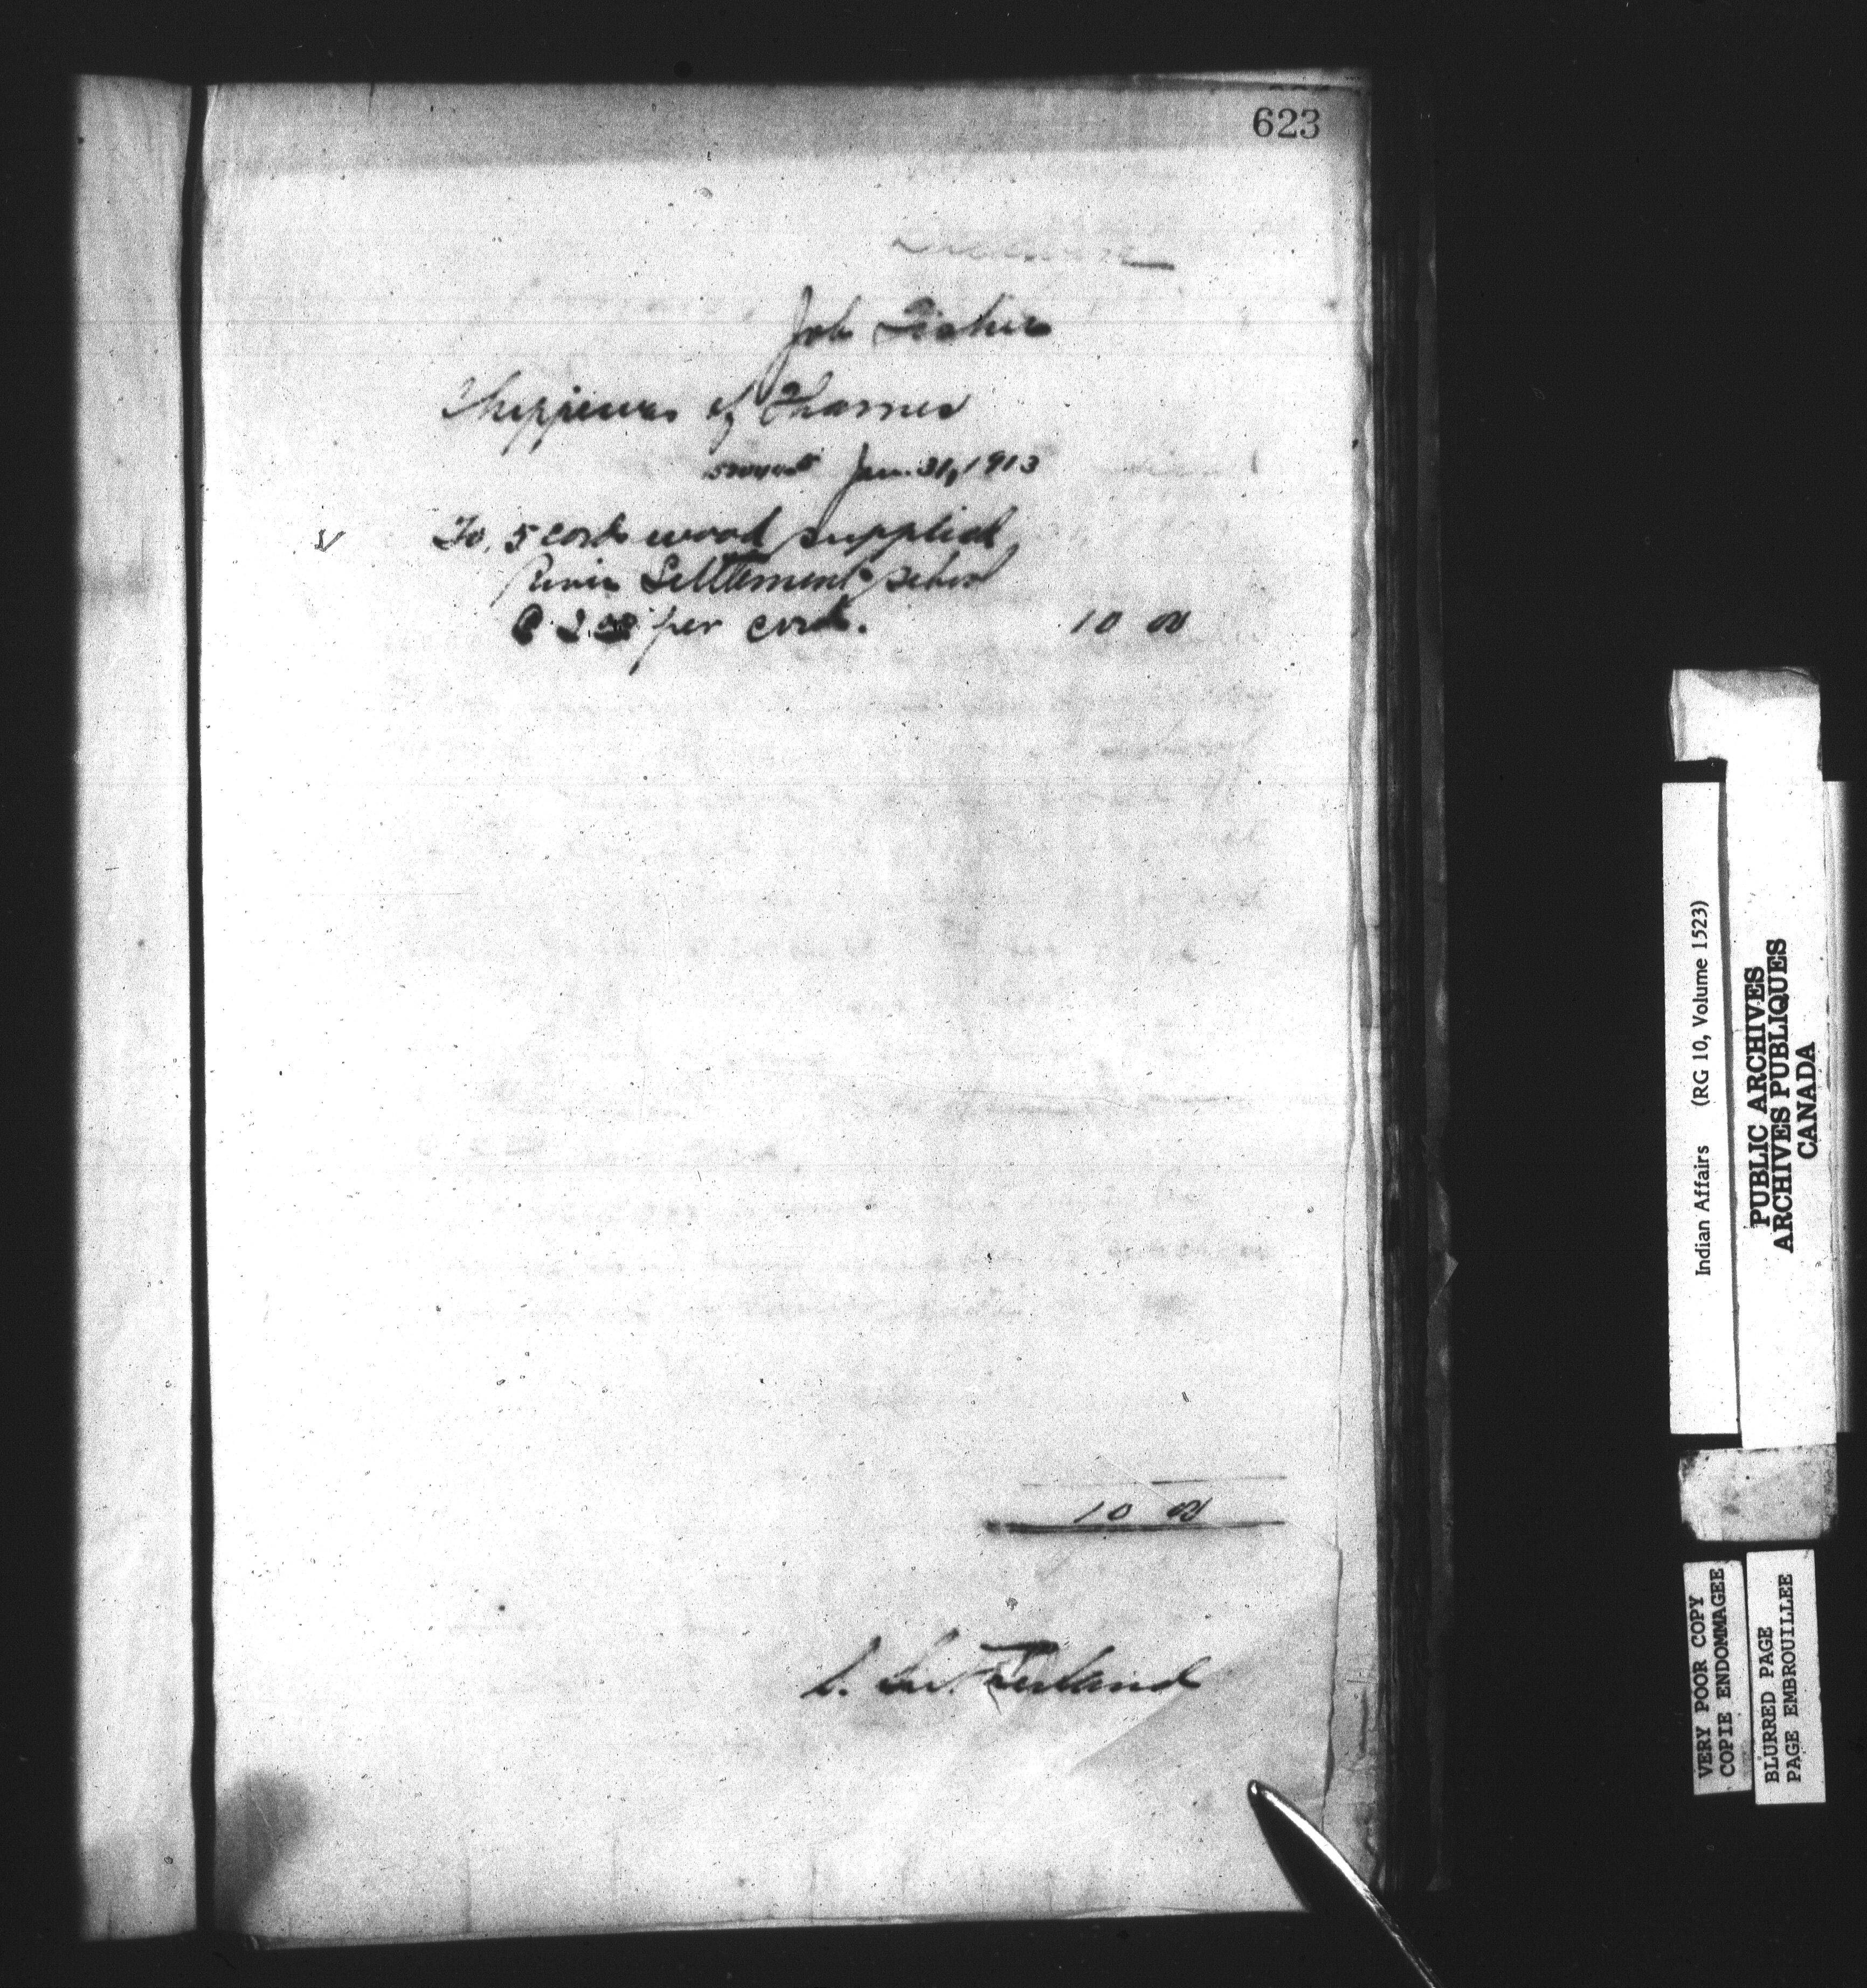 623
Job Fisher
Chippewas of Thames
Jan. 31, 1913
To, 5 cords wood supplied
River Settlement school
@ 2.00 per cord. 10 00
10 00
S. Sutherland
Indian Affairs (RG 10, Volume 1523)
PUBLIC ARCHIVES
ARCHIVES PUBLIQUES
CANADA
VERY POOR COPY
COPIE ENDOMMAGEE
BLURRED PAGE
PAGE EMBROUILLEE